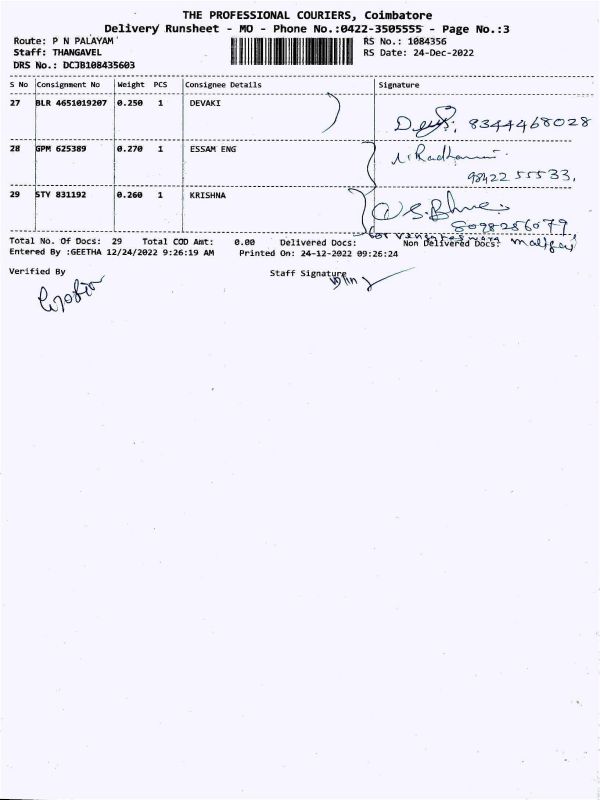 THE PROFESSIONAL COURIERS, Coimbatore
Delivery Runsheet - MO - Phone No.:0422-3505555 - Page No.:3
Route: P N PALAYAM RS No.: 1084356
Staff: THANGAVEL RS Date: 24-Dec-2022
DRS No.: DCJB108435603
S No Consignment No Weight PCS Consignee Details Signature
27 BLR 4651019207 0.250 1 DEVAKI
8344468028
28 GPM 625389 0.270 1 ESSAM ENG
98422 55533.
29 STY 831192 0.260 1 KRISHNA
8098256079
Total No. Of Docs: 29 Total COD Amt: 0.00 Delivered Docs: Non Delivered Docs:
Entered By :GEETHA 12/24/2022 9:26:19 AM Printed On: 24-12-2022 09:26:24
Verified By Staff Signature